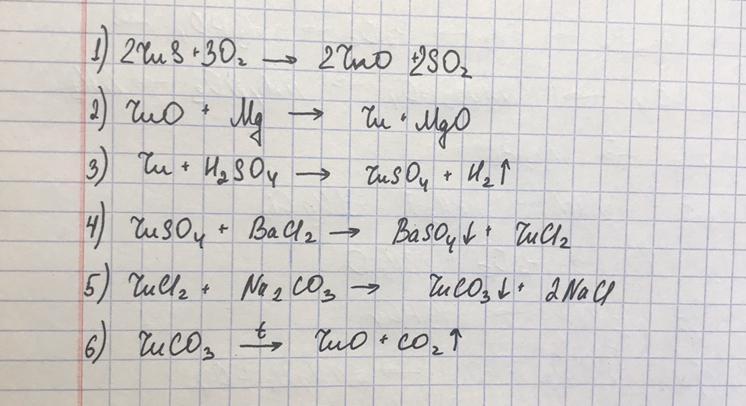 1) 2ZnS + 3O₂ → 2ZnO + 2SO₂
2) ZnO + Mg → Zn + MgO
3) Zn + H₂SO₄ → ZnSO₄ + H₂↑
4) ZnSO₄ + BaCl₂ → BaSO₄↓ + ZnCl₂
5) ZnCl₂ + Na₂CO₃ → ZnCO₃↓ + 2NaCl
6) ZnCO₃ →ᵗ ZnO + CO₂↑